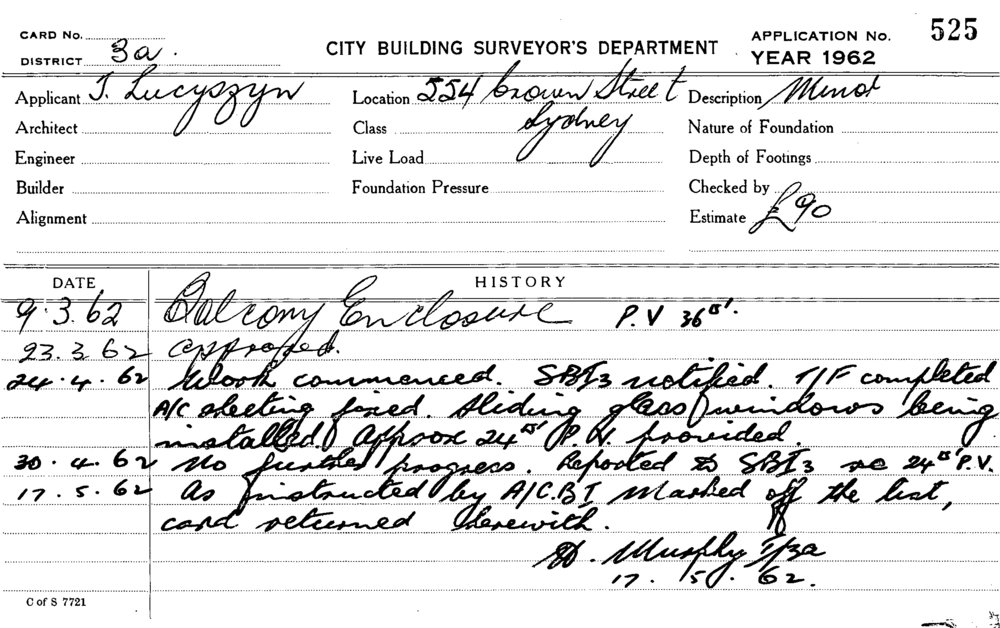 CARD No.
DISTRICT 3a.
CITY BUILDING SURVEYOR'S DEPARTMENT
APPLICATION No. 525
YEAR 1962
Applicant J. Lucyszyn Location 554 Crown Street Description Minor
Architect Class Sydney Nature of Foundation
Engineer Live Load Depth of Footings
Builder Foundation Pressure Checked by
Alignment Estimate £90
DATE HISTORY
9.3.62 Balcony Enclosure P.V 36□'.
23.3.62 approved.
24.4.62 Work commenced. SBI3 notified. T/F completed
A/C sheeting fixed. Sliding glass windows being
installed. Approx 24□' P.V. provided.
30.4.62 No further progress. Reported to SBI3 re 24□' P.V.
17.5.62 As instructed by A/C.B.I marked off the list,
card returned herewith.
Murphy I/3a
17.5.62.
C of S 7721